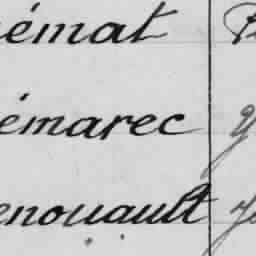 émat
émarec
enouault